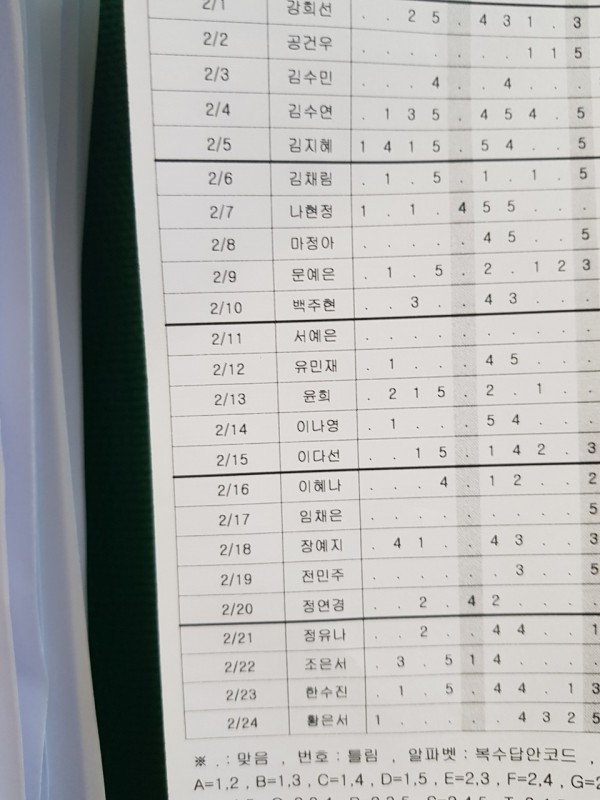 2/1 강희선 . . 2 5 . 4 3 1 . 3
2/2 공건우 . . . . . . . 1 1 5
2/3 김수민 . . . 4 . . 4 . . .
2/4 김수연 . 1 3 5 . 4 5 4 . 5
2/5 김지혜 1 4 1 5 . 5 4 . . 5
2/6 김채림 . 1 . 5 . 1 . 1 . 5
2/7 나현정 1 . 1 . 4 5 5 . . .
2/8 마정아 . . . . . 4 5 . . 5
2/9 문예은 . 1 . 5 . 2 . 1 2 3
2/10 백주현 . . 3 . . 4 3 . . .
2/11 서예은 . . . . . . . . . .
2/12 유민재 . 1 . . . 4 5 . . .
2/13 윤희 . 2 1 5 . 2 . 1 . .
2/14 이나영 . 1 . . . 5 4 . . .
2/15 이다선 . . 1 5 . 1 4 2 . 3
2/16 이혜나 . . . 4 . 1 2 . . 2
2/17 임채은 . . . . . . . . . 5
2/18 장예지 . 4 1 . . 4 3 . . 3
2/19 전민주 . . . . . . 3 . . 5
2/20 정연경 . . 2 . 4 2 . . . .
2/21 정유나 . . 2 . . 4 4 . . 1
2/22 조은서 . 3 . 5 1 4 . . . .
2/23 한수진 . 1 . 5 . 4 4 . 1 3
2/24 황은서 1 . . . . . 4 3 2 5
※ . : 맞음 , 번호 : 틀림 , 알파벳 : 복수답안코드 ,
A=1,2 , B=1,3 , C=1,4 , D=1,5 , E=2,3 , F=2,4 , G=2